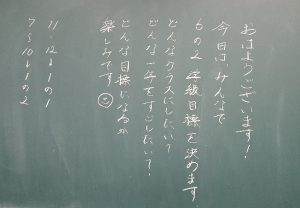 おはようございます！
今日は、みんなで
6の2 学級目標を決めます。
どんなクラスにしたい？
どんな一年をすごしたい？
どんな目標になるか
楽しみです
11〜12→1の1
7〜10→1の2